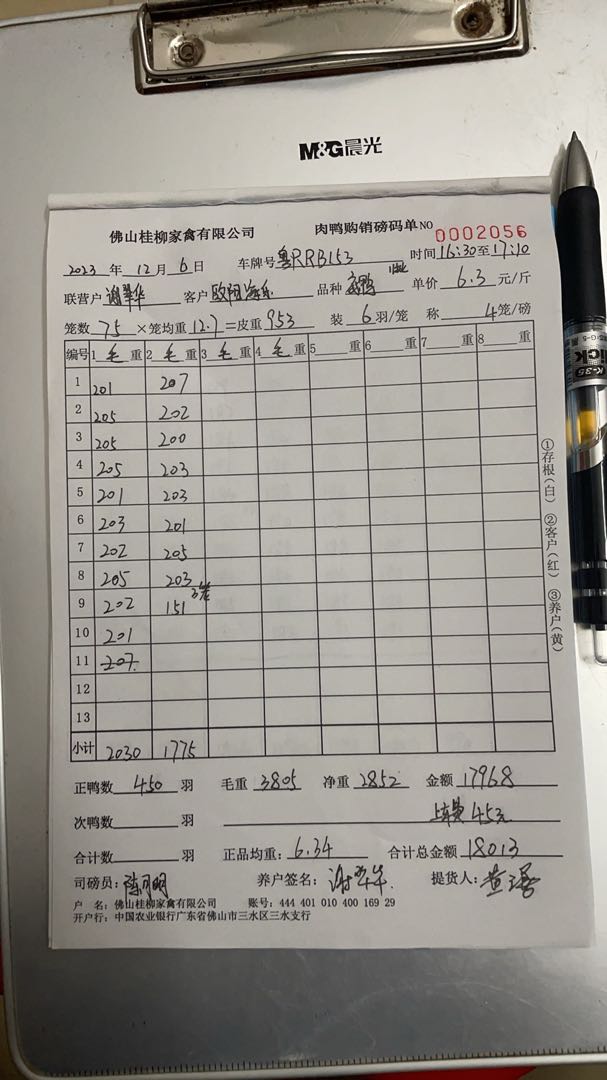 M&G晨光
佛山桂柳家禽有限公司 肉鸭购销磅码单 NO 0002056
2023 年 12 月 6 日 车牌号 粤RRB153 时间 16:30至17:10
联营户 谢翠华 客户 品种 单价 6.3 元/斤
笼数 75 ×笼均重 12.7 =皮重 953 装 6 羽/笼 称 4 笼/磅
编号 1 毛 重 2 毛 重 3 毛 重 4 毛 重 5 重 6 重 7 重 8 重
1 201 207
2 205 202
3 205 200
4 205 203
5 201 203
6 203 201
7 202 205
8 205 203
9 202 151 3笼
10 201
11 207
12
13
小计 2030 1775
正鸭数 450 羽 毛重 3805 净重 2852 金额 17968
次鸭数 羽 上车费 45元
合计数 羽 正品均重: 6.34 合计总金额 18013
司磅员: 养户签名: 谢翠华 提货人:
户 名: 佛山桂柳家禽有限公司 账号: 444 401 010 400 169 29
开户行: 中国农业银行广东省佛山市三水区三水支行
①存根(白) ②客户(红) ③养户(黄)
K-35